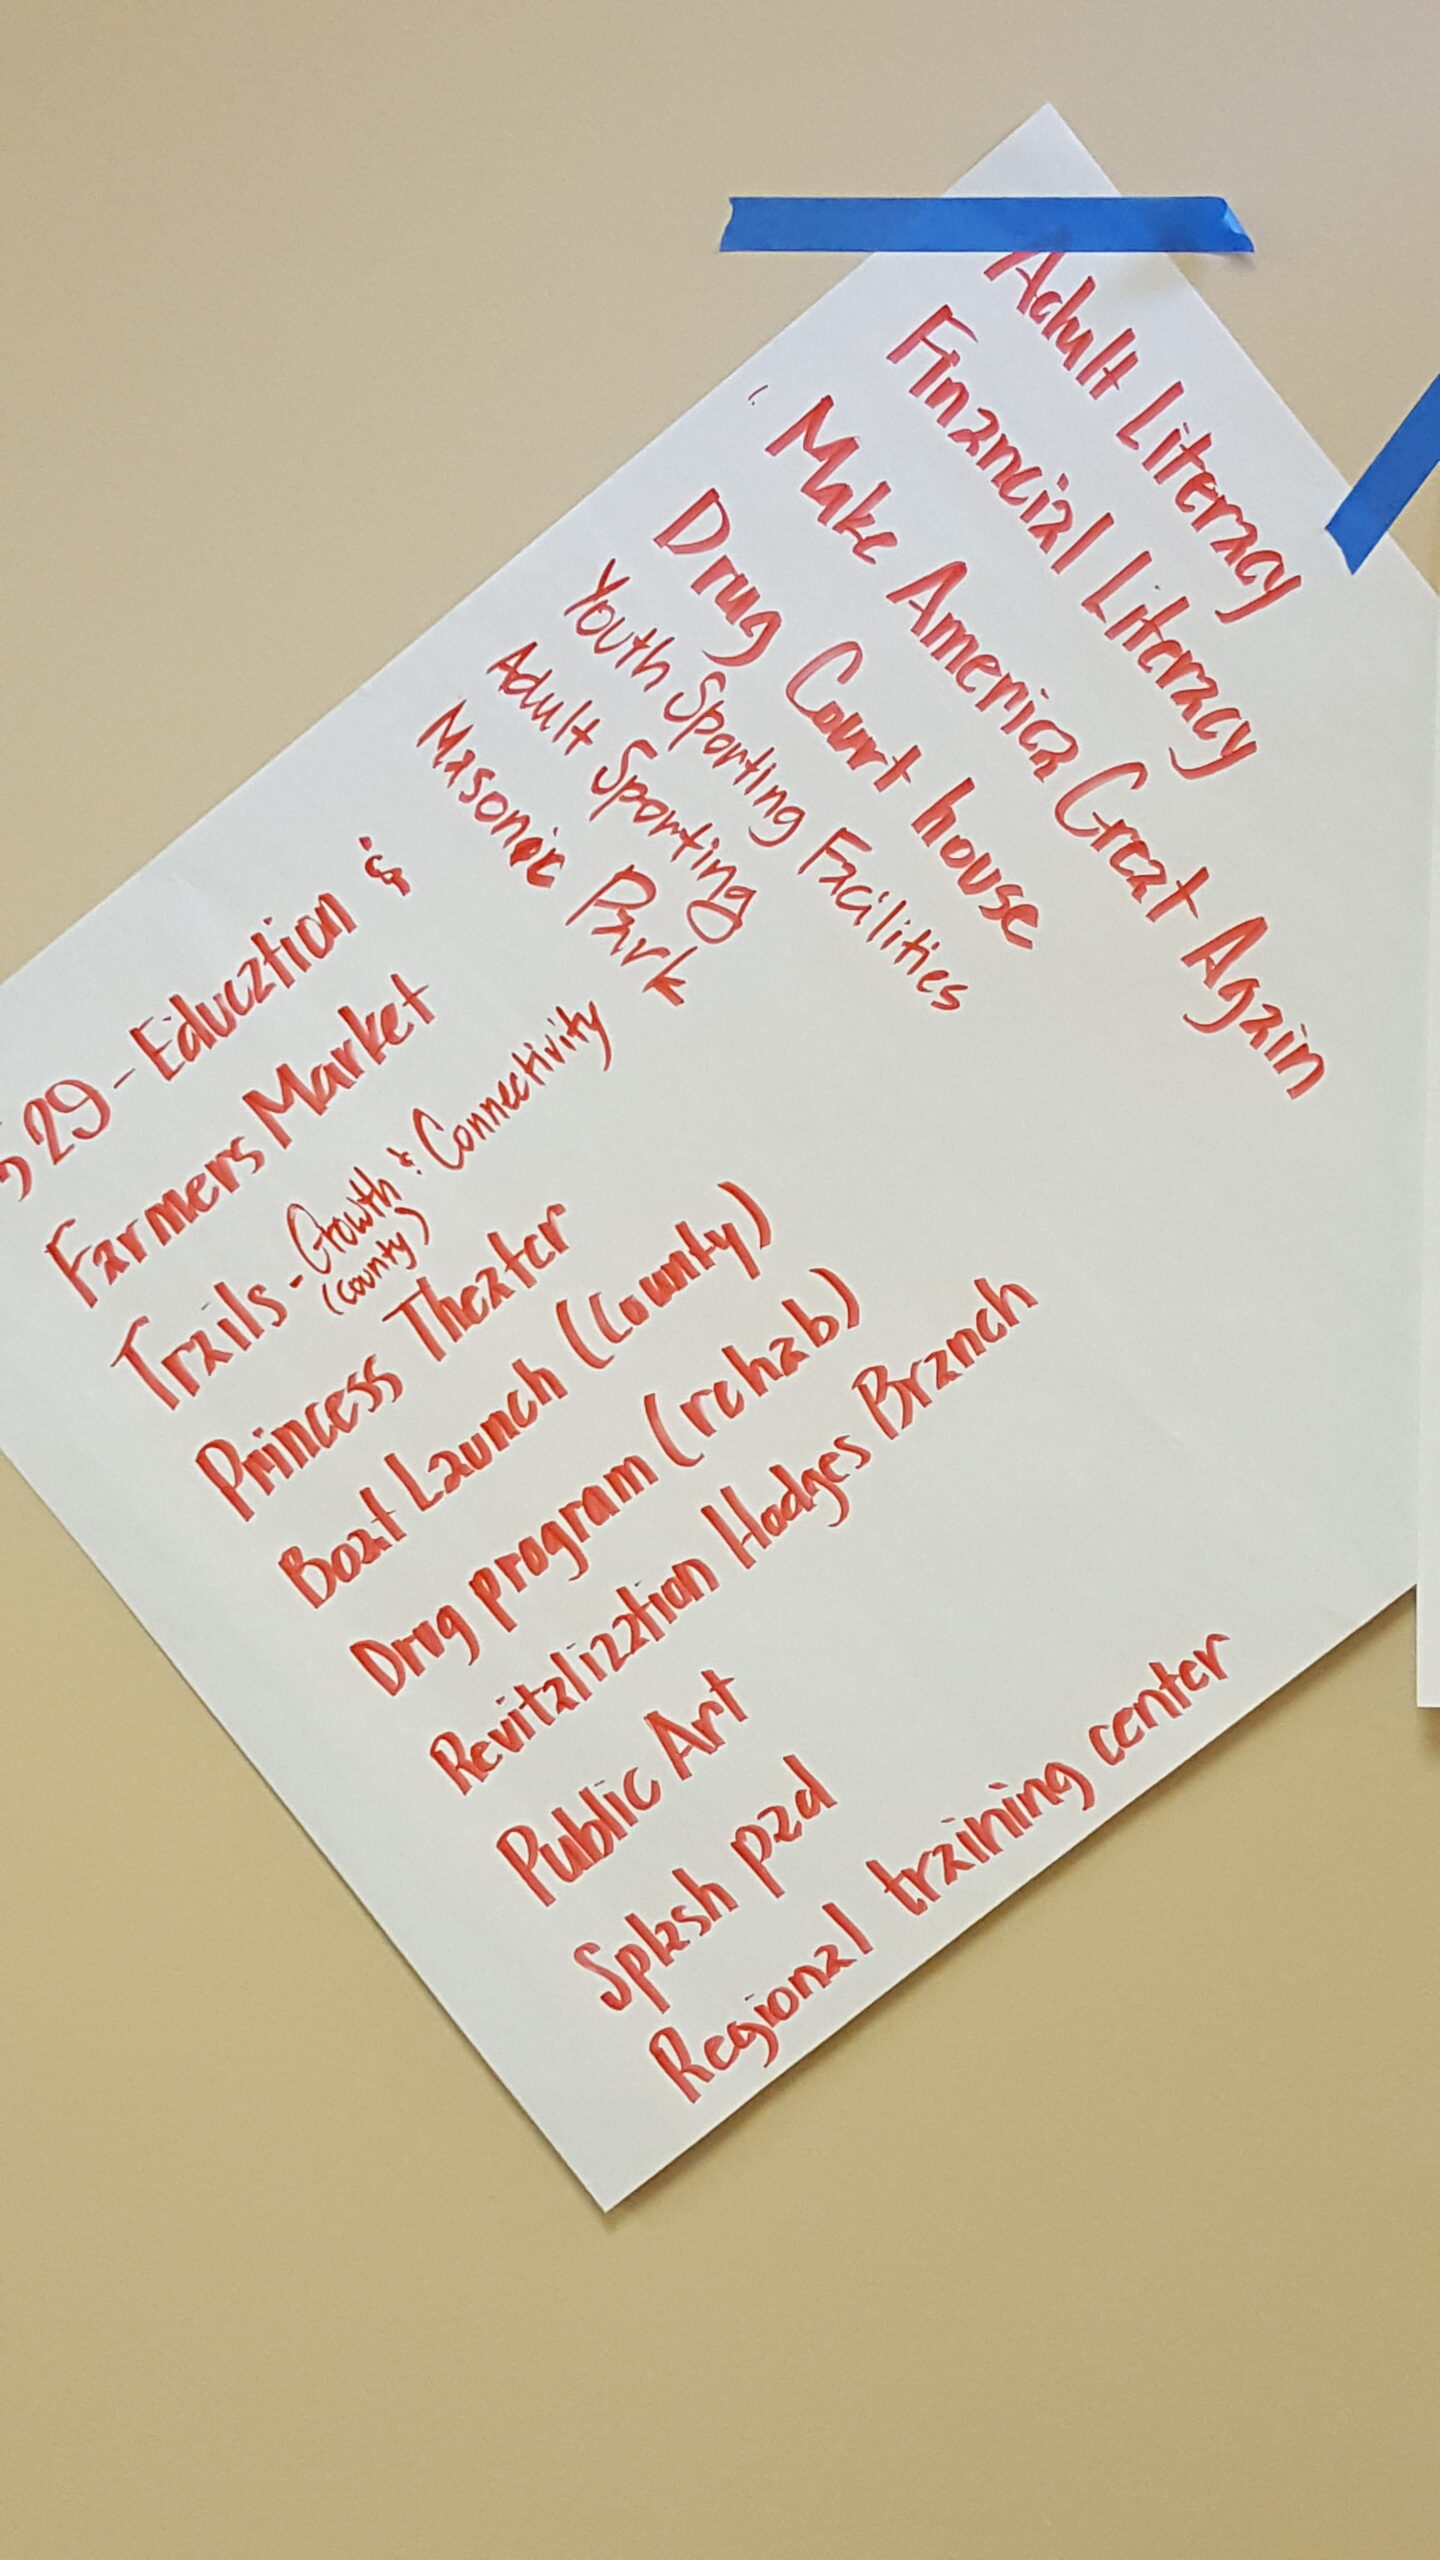 Adult Literacy
Financial Literacy
Make America Great Again
Drug Court house
Youth Sporting Facilities
Adult Sporting
Masonic Park
529 - Education &
Farmers Market
Trails - Growth & Connectivity
(County)
Princess Theater
Boat Launch (County)
Drug program (rehab)
Revitalization Hodges Branch
Public Art
Splash pad
Regional training center